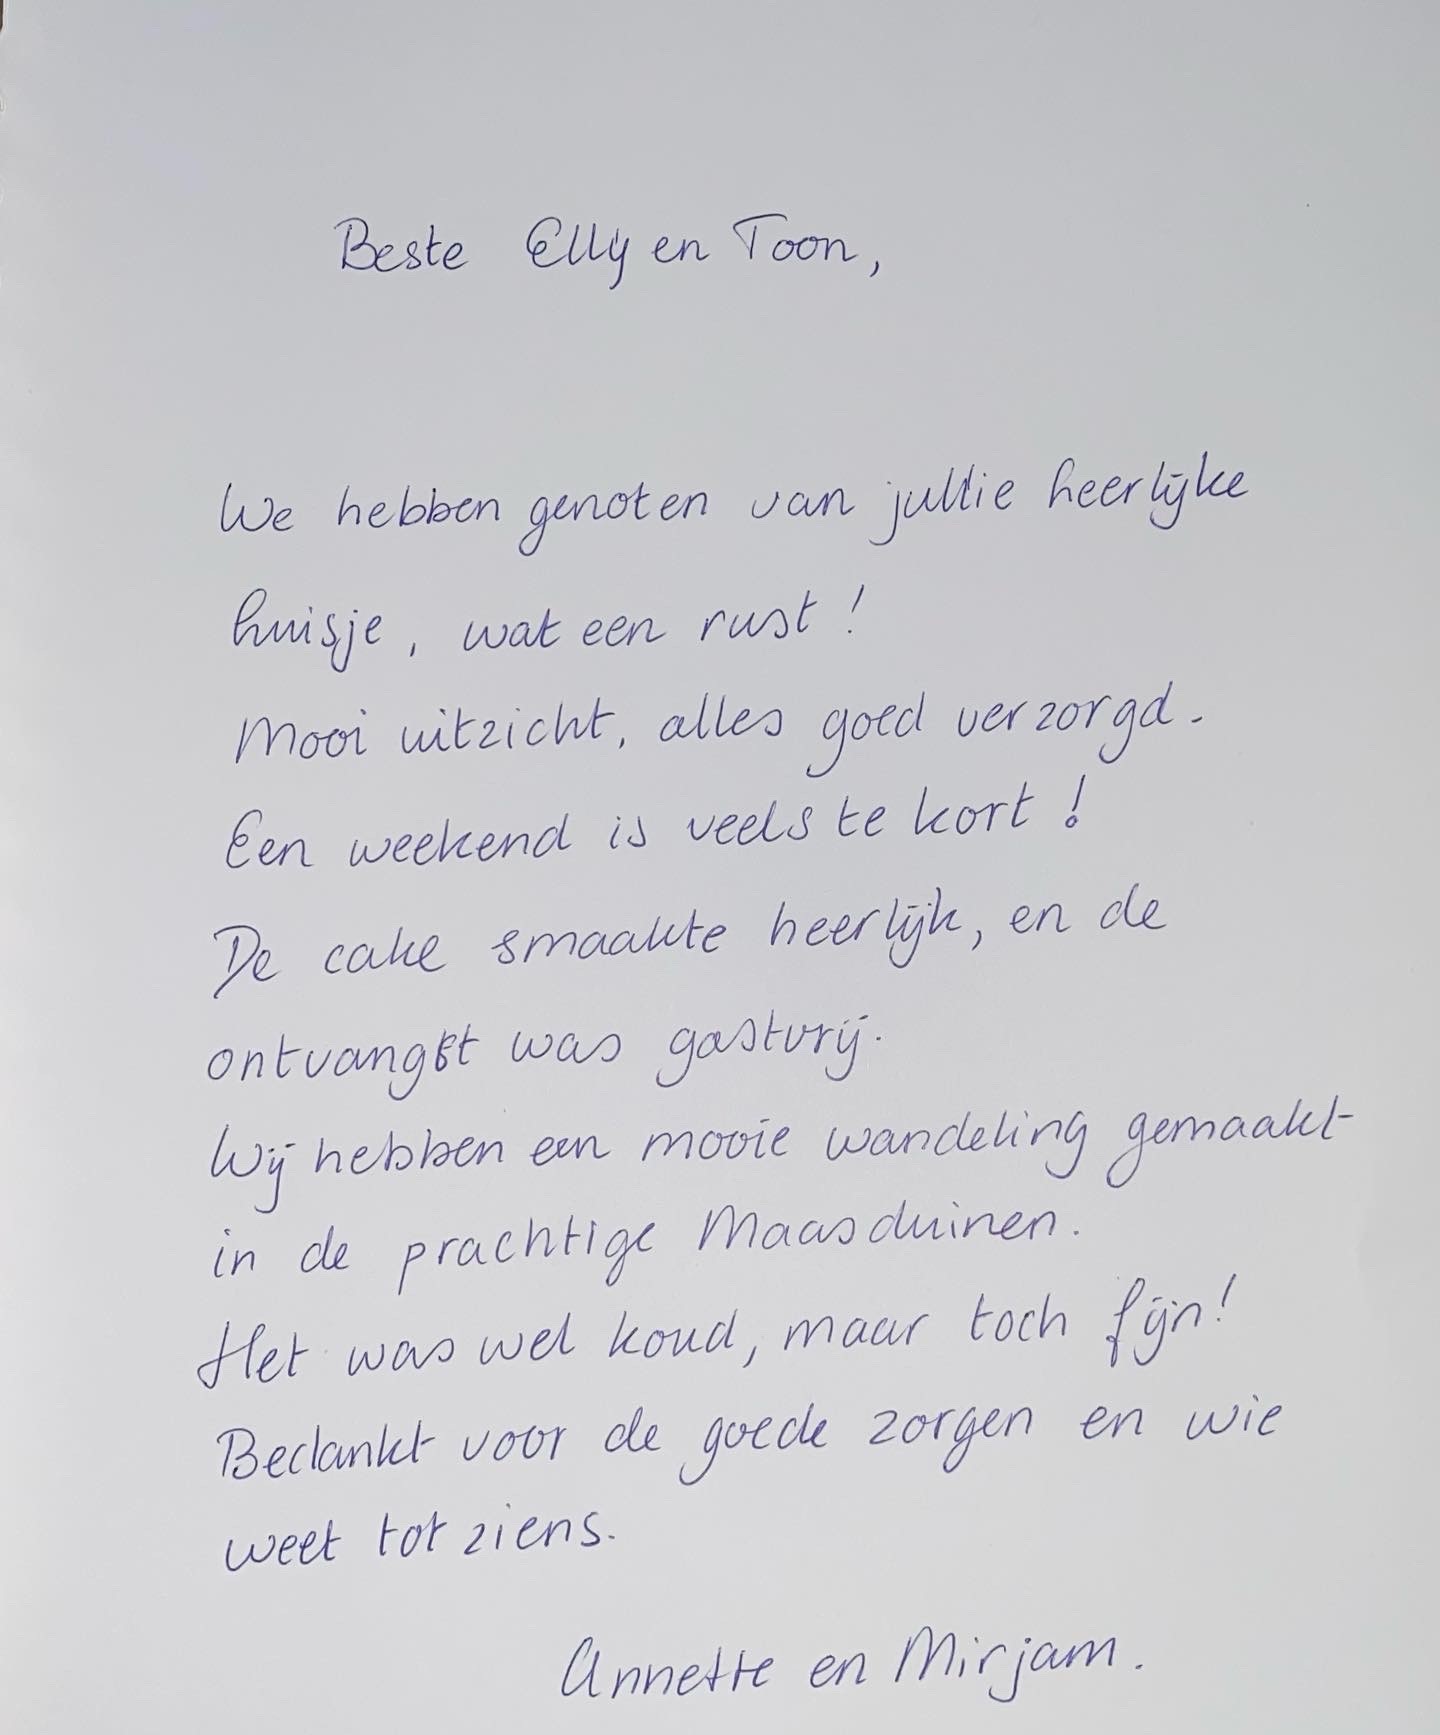 Beste Elly en Toon,
We hebben genoten van jullie heerlijke
huisje, wat een rust!
Mooi uitzicht, alles goed verzorgd.
Een weekend is veels te kort!
De cake smaakte heerlijk, en de
ontvangst was gastvrij.
Wij hebben een mooie wandeling gemaakt
in de prachtige Maasduinen.
Het was wel koud, maar toch fijn!
Bedankt voor de goede zorgen en wie
weet tot ziens.
Annette en Mirjam.